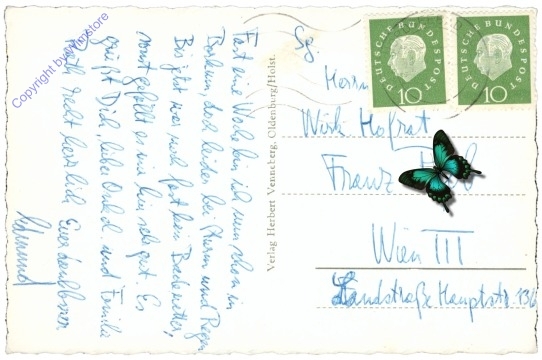 Fast eine Woche bin ich nun schon in
Borkum, doch leider bei Sturm und Regen
Bis jetzt war noch fast kein Badewetter,
sonst gefällt es mir hier sehr gut. Es
grüßt Dich, lieber Onkel und Familie
recht herzlich Euer dankbarer
Verlag Herbert Venneberg, Oldenburg/Holst.
DEUTSCHE BUNDESPOST
10
DEUTSCHE BUNDESPOST
10
Herrn
Wirk Hofrat
Franz
Wien III
Landstraße Hauptstr. 136
Copyright by